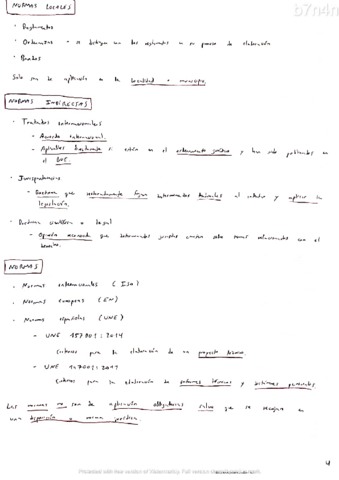 NORMAS LOCALES
· Reglamentos
· Ordenanzas → se distinguen de los reglamentos en su proceso de elaboración
· Bandos
Solo son de aplicación en la localidad o municipio.
NORMAS INDIRECTAS
· Tratados internacionales
- Acuerdo internacional.
- Aplicables directamente si están en el ordenamiento jurídico y han sido publicados en
el BOE.
· Jurisprudencia
- Doctrina que reiteradamente fijan determinados tribunales al interpretar y aplicar la
legislación.
· Doctrina científica o legal
- Opinión razonada que determinados juristas emiten sobre temas relacionados con el
derecho.
NORMAS
· Normas internacionales (ISO)
· Normas europeas (EN)
· Normas españolas (UNE)
- UNE 157001:2014
Criterios para la elaboración de un proyecto técnico.
- UNE 197001:2019
Criterios para la elaboración de informes técnicos y dictámenes periciales
Las normas no son de aplicación obligatoria salvo que se recojan en
una disposición o norma jurídica
4
b7n4n